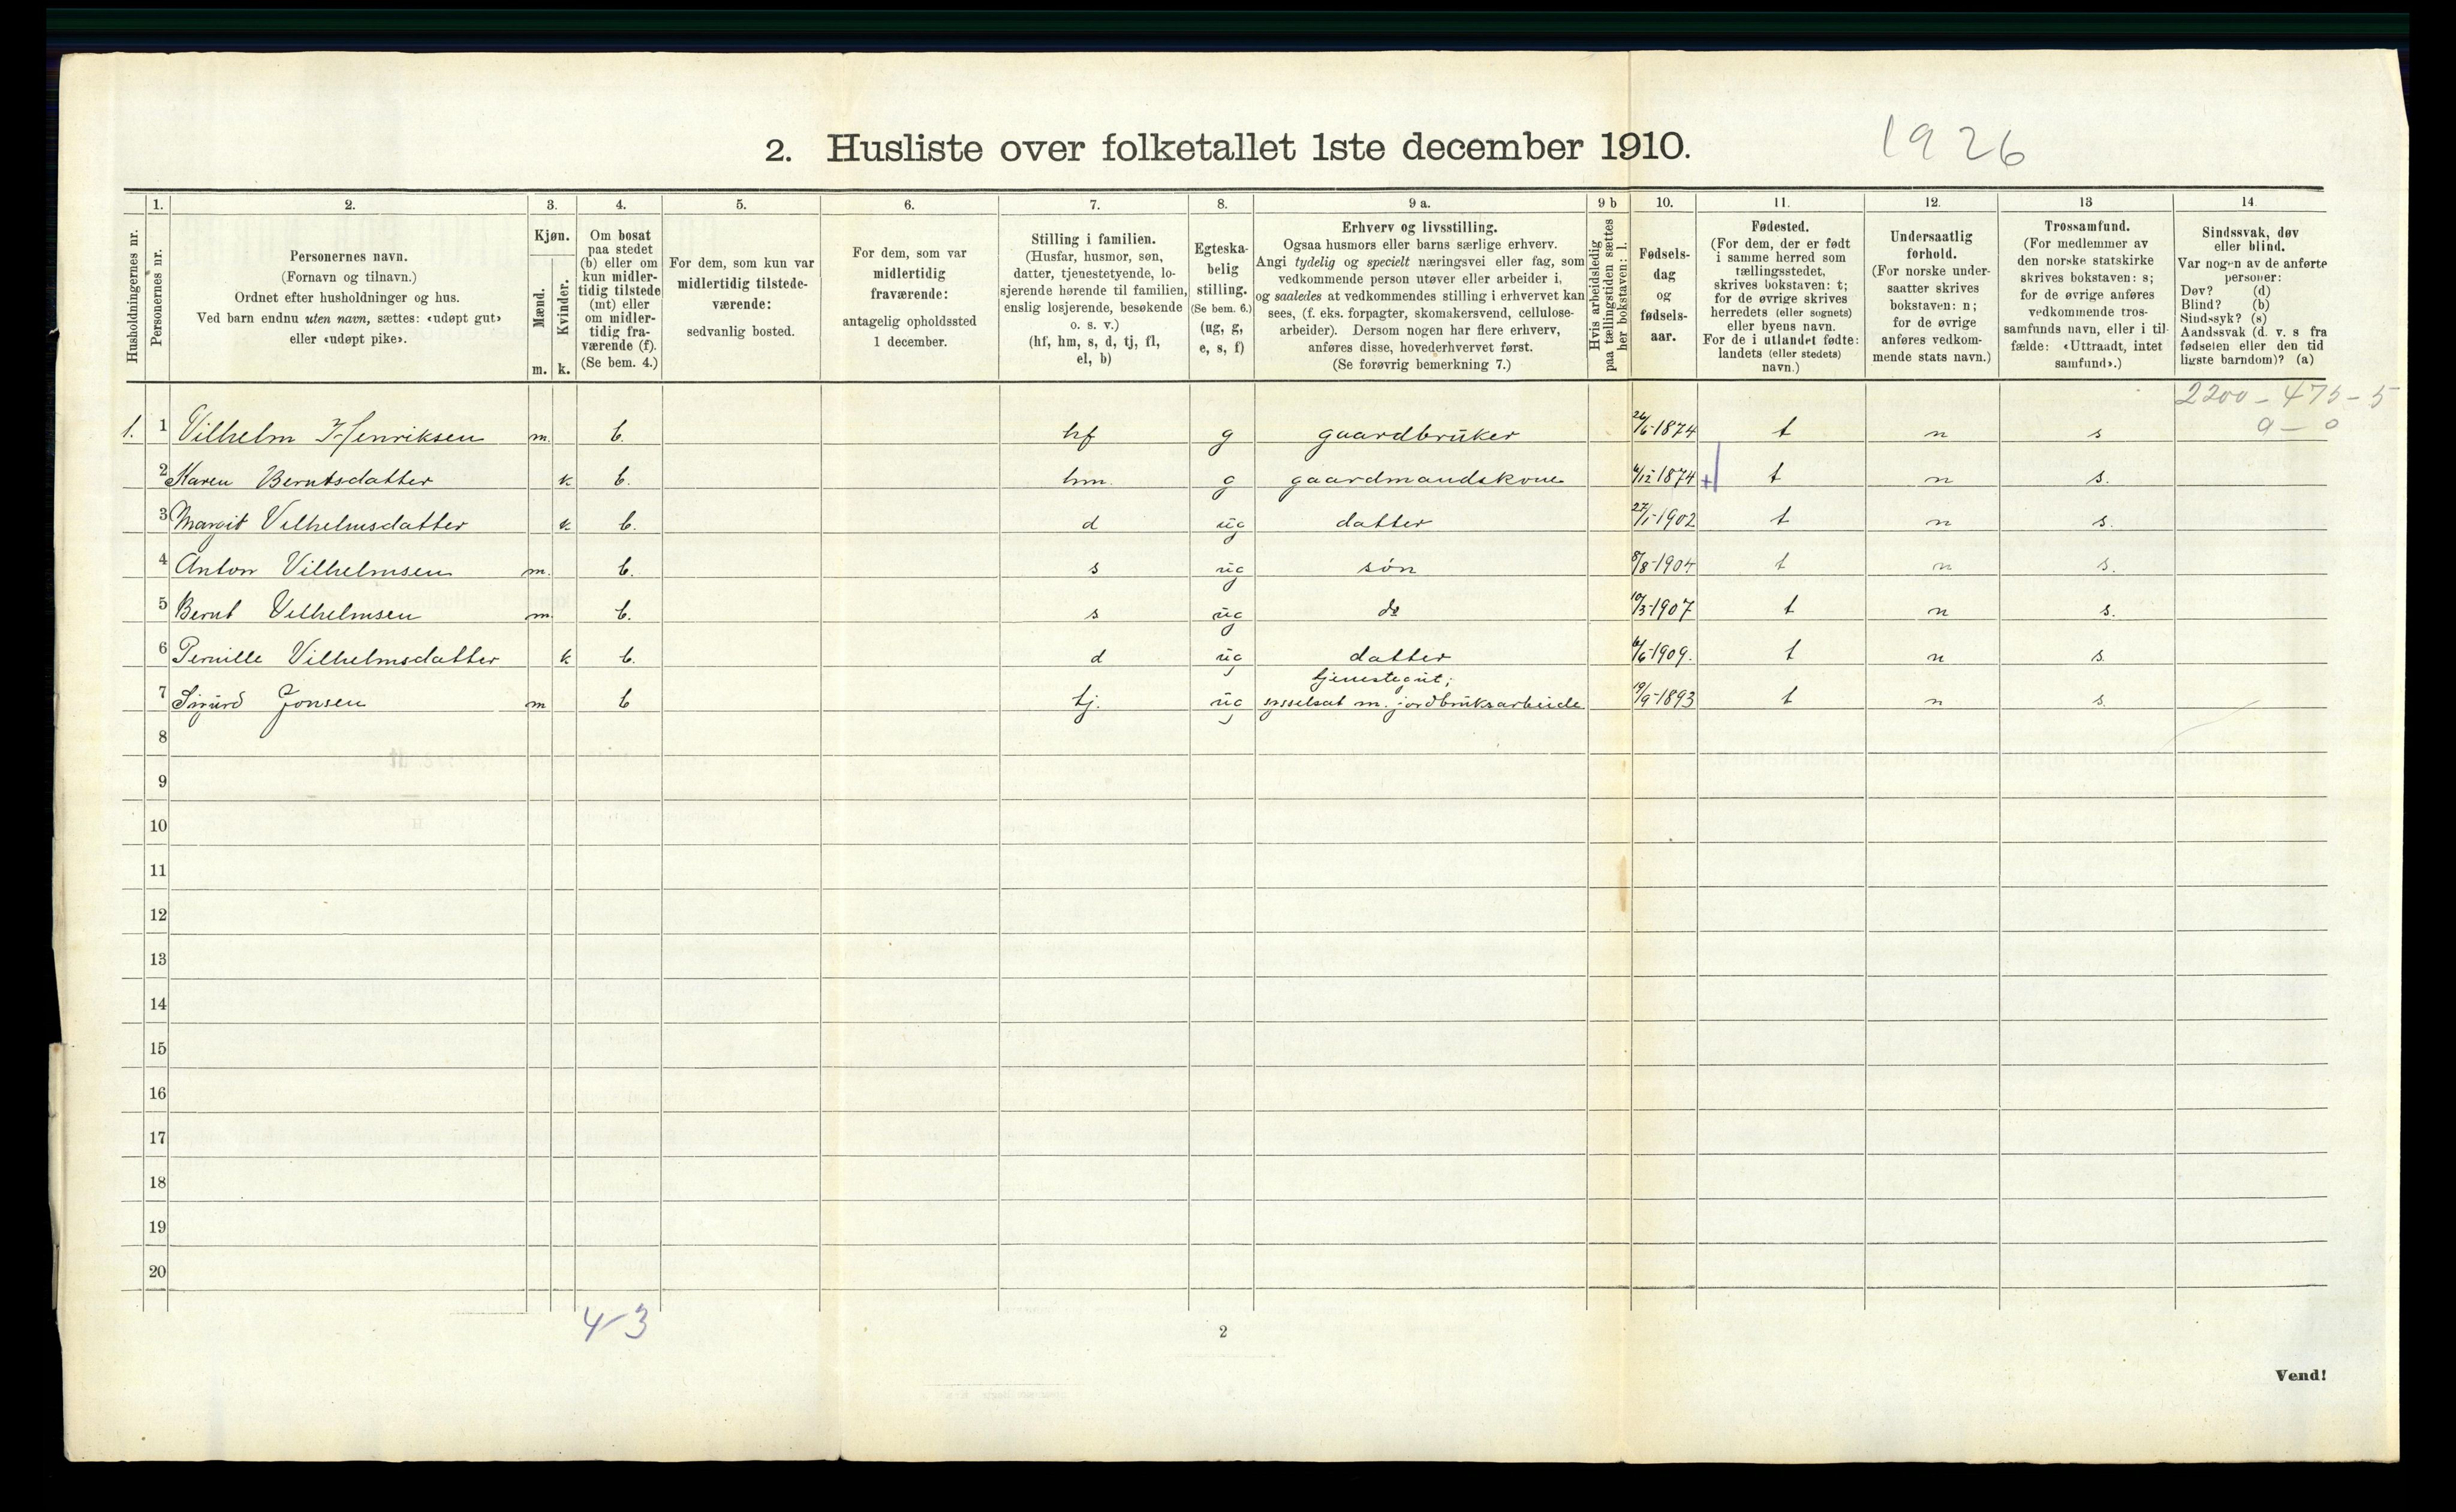 2. Husliste over folketallet 1ste december 1910.
1926
Husholdningernes nr.
1.
Personernes nr.
2.
Personernes navn.
(Fornavn og tilnavn.)
Ordnet efter husholdninger og hus.
Ved barn endnu uten navn, sættes: «udøpt gut»
eller «udøpt pike».
3.
Kjøn.
Mænd.
Kvinder.
m. k.
4.
Om bosat
paa stedet
(b) eller om
kun midler-
tidig tilstede
(mt) eller
om midler-
tidig fra-
værende (f).
(Se bem. 4.)
5.
For dem, som kun var
midlertidig tilstede-
værende:
sedvanlig bosted.
6.
For dem, som var
midlertidig
fraværende:
antagelig opholdssted
1 december.
7.
Stilling i familien.
(Husfar, husmor, søn,
datter, tjenestetyende, lo-
sjerende hørende til familien,
enslig losjerende, besøkende
o. s. v.)
(hf, hm, s, d, tj, fl,
el, b)
8.
Egteska-
belig
stilling.
(Se bem. 6.)
(ug, g,
e, s, f)
9 a.
Erhverv og livsstilling.
Ogsaa husmors eller barns særlige erhverv.
Angi tydelig og specielt næringsvei eller fag, som
vedkommende person utøver eller arbeider i,
og saaledes at vedkommendes stilling i erhvervet kan
sees, (f. eks. forpagter, skomakersvend, cellulose-
arbeider). Dersom nogen har flere erhverv,
anføres disse, hovederhvervet først.
(Se forøvrig bemerkning 7.)
9 b
Hvis arbeidsledig
paa tællingstiden sættes
her bokstaven: l.
10.
Fødsels-
dag
og
fødsels-
aar.
11.
Fødested.
(For dem, der er født
i samme herred som
tællingsstedet,
skrives bokstaven: t;
for de øvrige skrives
herredets (eller sognets)
eller byens navn.
For de i utlandet fødte:
landets (eller stedets)
navn.)
12.
Undersaatlig
forhold.
(For norske under-
saatter skrives
bokstaven: n;
for de øvrige
anføres vedkom-
mende stats navn.)
13
Trossamfund.
(For medlemmer av
den norske statskirke
skrives bokstaven: s;
for de øvrige anføres
vedkommende tros-
samfunds navn, eller i til-
fælde: «Uttraadt, intet
samfund».)
14
Sindssvak, døv
eller blind.
Var nogen av de anførte
personer:
Døv? (d)
Blind? (b)
Sindssyk? (s)
Aandssvak (d. v. s fra
fødselen eller den tid
ligste barndom)? (a)
2200 - 475 - 5
0 - 0
1. 1 Vilhelm Henriksen m. b. hf g gaardbruker 26/6-1874 t n s
2 Karen Berntsdatter k b. hm. g gaardmandskone 6/12-1874 + t n s.
3 Margit Vilhelmsdatter k b. d ug datter 27/1-1902 t n s.
4 Anton Vilhelmsen m. b. s ug søn 8/8-1904 t n s.
5 Bernt Vilhelmsen m. b. s ug do 10/3-1907 t n s.
6 Pernille Vilhelmsdatter k b. d ug datter 6/6-1909. t n s.
7 Sigurd Jonsen m b tj. ug tjenestegut;
sysselsat m. jordbruksarbeide 19/9-1893 t n s.
8
9
10
11
12
13
14
15
16
17
18
19
20
4-3
2
Vend!